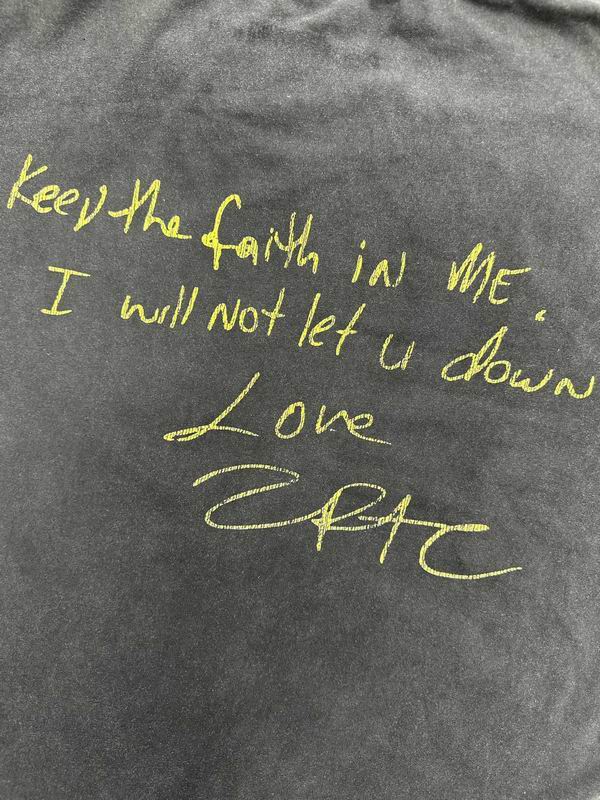 Keep the faith in ME.
I will Not let u down
Love
2PAC